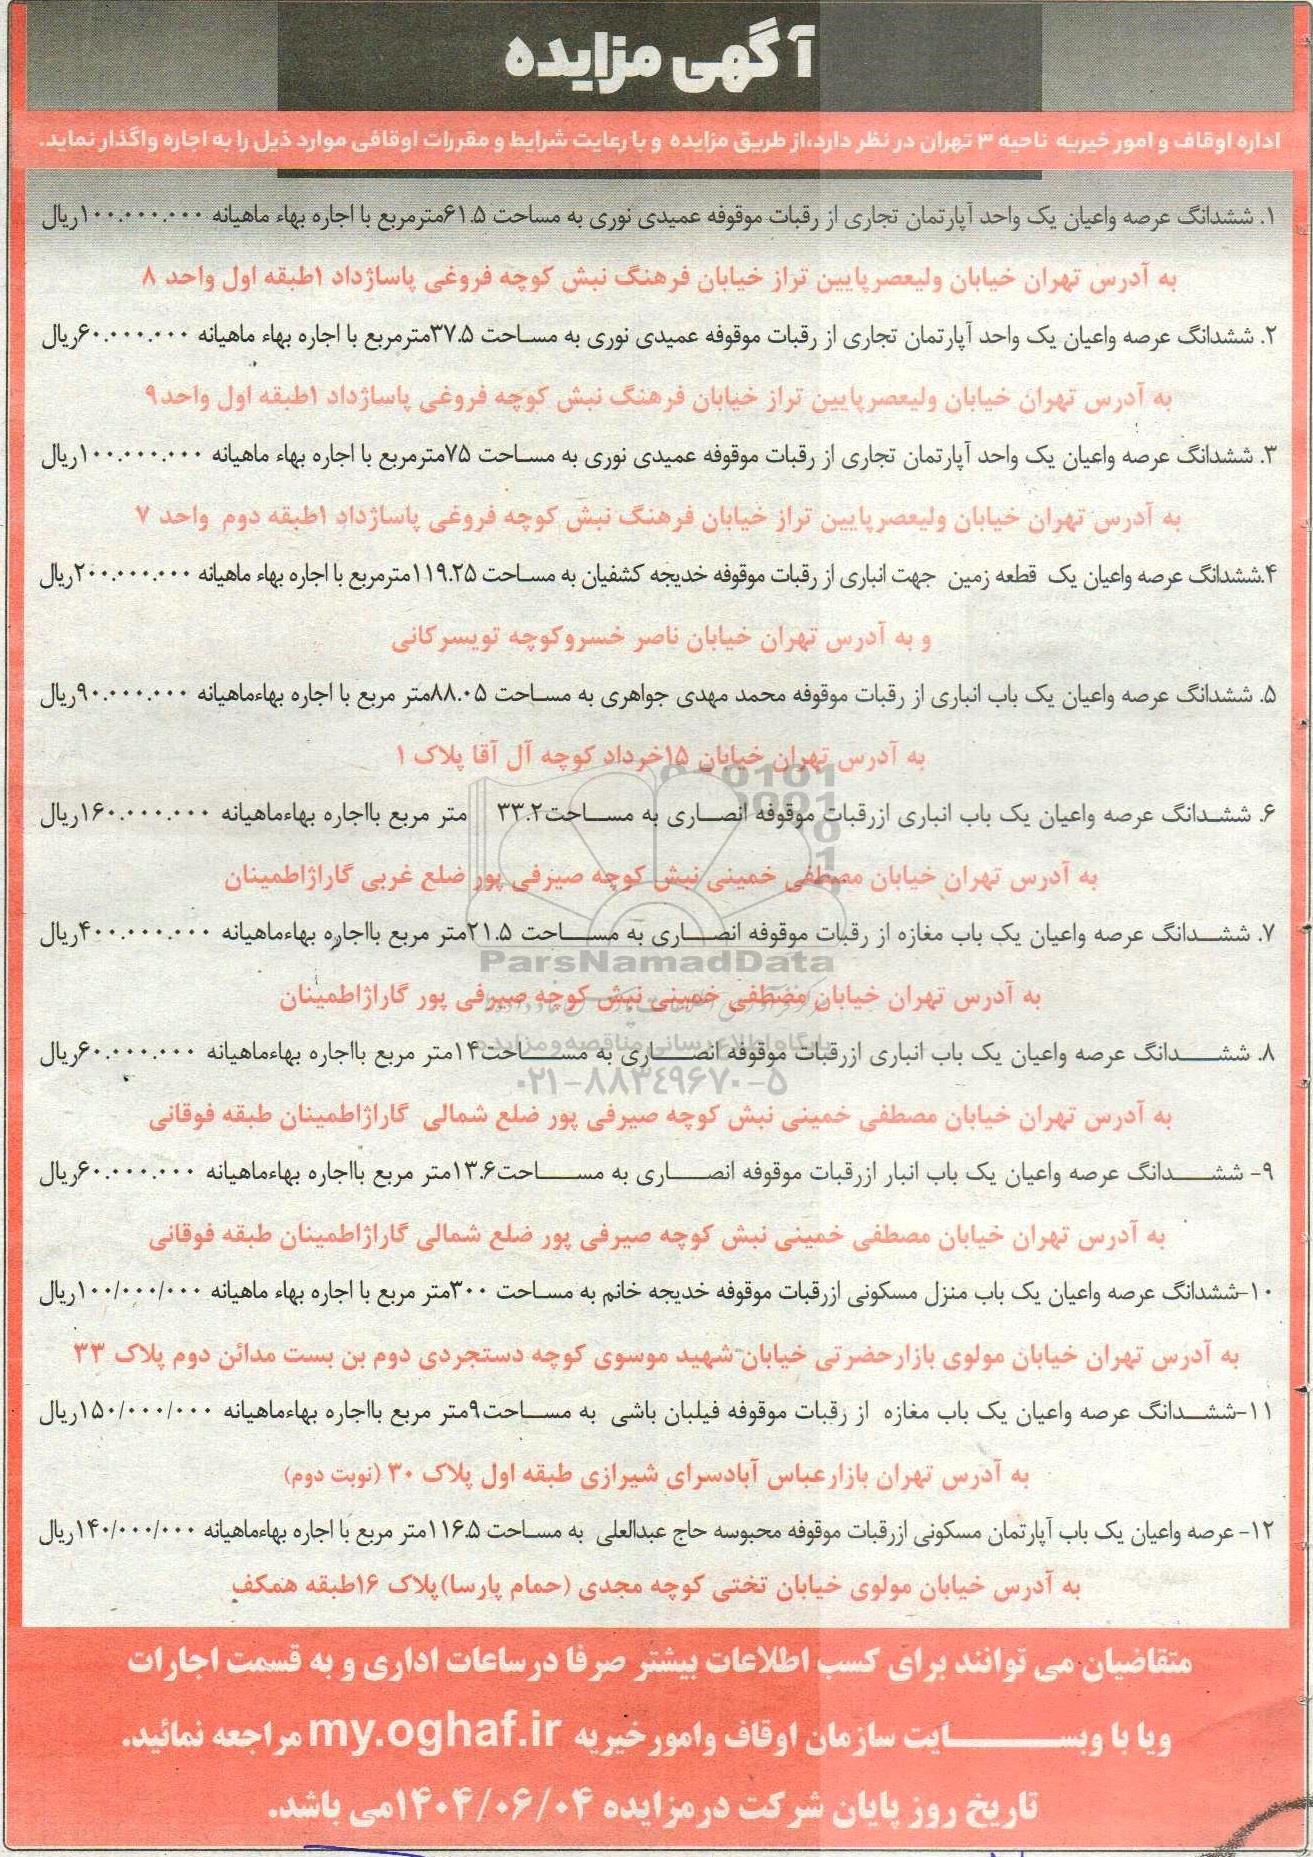 آگهی مزایده
اداره اوقاف و امور خیریه ناحیه ۳ تهران در نظر دارد،از طریق مزایده و با رعایت شرایط و مقررات اوقافی موارد ذیل را به اجاره واگذار نماید.
۱. ششدانگ عرصه واعیان یک واحد آپارتمان تجاری از رقبات موقوفه عمیدی نوری به مساحت ۶۱.۵مترمربع با اجاره بهاء ماهیانه ۱۰۰.۰۰۰.۰۰۰ریال
به آدرس تهران خیابان ولیعصرپایین تراز خیابان فرهنگ نبش کوچه فروغی پاساژداد ۱طبقه اول واحد ۸
۲. ششدانگ عرصه واعیان یک واحد آپارتمان تجاری از رقبات موقوفه عمیدی نوری به مساحت ۳۷.۵مترمربع با اجاره بهاء ماهیانه ۶۰.۰۰۰.۰۰۰ریال
به آدرس تهران خیابان ولیعصرپایین تراز خیابان فرهنگ نبش کوچه فروغی پاساژداد ۱طبقه اول واحد۹
۳. ششدانگ عرصه واعیان یک واحد آپارتمان تجاری از رقبات موقوفه عمیدی نوری به مساحت ۷۵مترمربع با اجاره بهاء ماهیانه ۱۰۰.۰۰۰.۰۰۰ریال
به آدرس تهران خیابان ولیعصرپایین تراز خیابان فرهنگ نبش کوچه فروغی پاساژداد ۱طبقه دوم واحد ۷
۴.ششدانگ عرصه واعیان یک قطعه زمین جهت انباری از رقبات موقوفه خدیجه کشفیان به مساحت ۱۱۹.۲۵مترمربع با اجاره بهاء ماهیانه ۲۰۰.۰۰۰.۰۰۰ریال
و به آدرس تهران خیابان ناصر خسروکوچه تویسرکانی
۵. ششدانگ عرصه واعیان یک باب انباری از رقبات موقوفه محمد مهدی جواهری به مساحت ۸۸.۰۵متر مربع با اجاره بهاءماهیانه ۹۰.۰۰۰.۰۰۰ریال
به آدرس تهران خیابان ۱۵خرداد کوچه آل آقا پلاک ۱
۶. ششدانگ عرصه واعیان یک باب انباری ازرقبات موقوفه انصاری به مساحت۳۳.۲ متر مربع بااجاره بهاءماهیانه ۱۶۰.۰۰۰.۰۰۰ریال
به آدرس تهران خیابان مصطفی خمینی نبش کوچه صیرفی پور ضلع غربی گاراژاطمینان
۷. ششدانگ عرصه واعیان یک باب مغازه از رقبات موقوفه انصاری به مساحت ۲۱.۵متر مربع بااجاره بهاءماهیانه ۴۰۰.۰۰۰.۰۰۰ریال
ParsNamadData
به آدرس تهران خیابان مصطفی خمینی نبش کوچه صیرفی پور گاراژاطمینان
پایگاه اطلاع رسانی مناقصه و مزایده
۸. ششدانگ عرصه واعیان یک باب انباری ازرقبات موقوفه انصاری به مساحت۱۴متر مربع بااجاره بهاءماهیانه ۶۰.۰۰۰.۰۰۰ریال
۰۲۱-۸۸۳۴۹۶۷۰-۵
به آدرس تهران خیابان مصطفی خمینی نبش کوچه صیرفی پور ضلع شمالی گاراژاطمینان طبقه فوقانی
۹- ششدانگ عرصه واعیان یک باب انبار ازرقبات موقوفه انصاری به مساحت۱۳.۶متر مربع بااجاره بهاءماهیانه ۶۰.۰۰۰.۰۰۰ریال
به آدرس تهران خیابان مصطفی خمینی نبش کوچه صیرفی پور ضلع شمالی گاراژاطمینان طبقه فوقانی
۱۰-ششدانگ عرصه واعیان یک باب منزل مسکونی ازرقبات موقوفه خدیجه خانم به مساحت ۳۰۰متر مربع با اجاره بهاء ماهیانه ۱۰۰/۰۰۰/۰۰۰ریال
به آدرس تهران خیابان مولوی بازارحضرتی خیابان شهید موسوی کوچه دستجردی دوم بن بست مدائن دوم پلاک ۳۳
۱۱-ششدانگ عرصه واعیان یک باب مغازه از رقبات موقوفه فیلبان باشی به مساحت۹متر مربع بااجاره بهاءماهیانه ۱۵۰/۰۰۰/۰۰۰ریال
به آدرس تهران بازارعباس آبادسرای شیرازی طبقه اول پلاک ۳۰ (نوبت دوم)
۱۲- عرصه واعیان یک باب آپارتمان مسکونی ازرقبات موقوفه محبوسه حاج عبدالعلی به مساحت ۱۱۶.۵متر مربع با اجاره بهاءماهیانه ۱۴۰/۰۰۰/۰۰۰ریال
به آدرس خیابان مولوی خیابان تختی کوچه مجدی (حمام پارسا)پلاک ۱۶طبقه همکف
متقاضیان می توانند برای کسب اطلاعات بیشتر صرفا درساعات اداری و به قسمت اجارات
ویا با وبسایت سازمان اوقاف وامورخیریه my.oghaf.ir مراجعه نمائید.
تاریخ روز پایان شرکت درمزایده ۱۴۰۴/۰۶/۰۴می باشد.